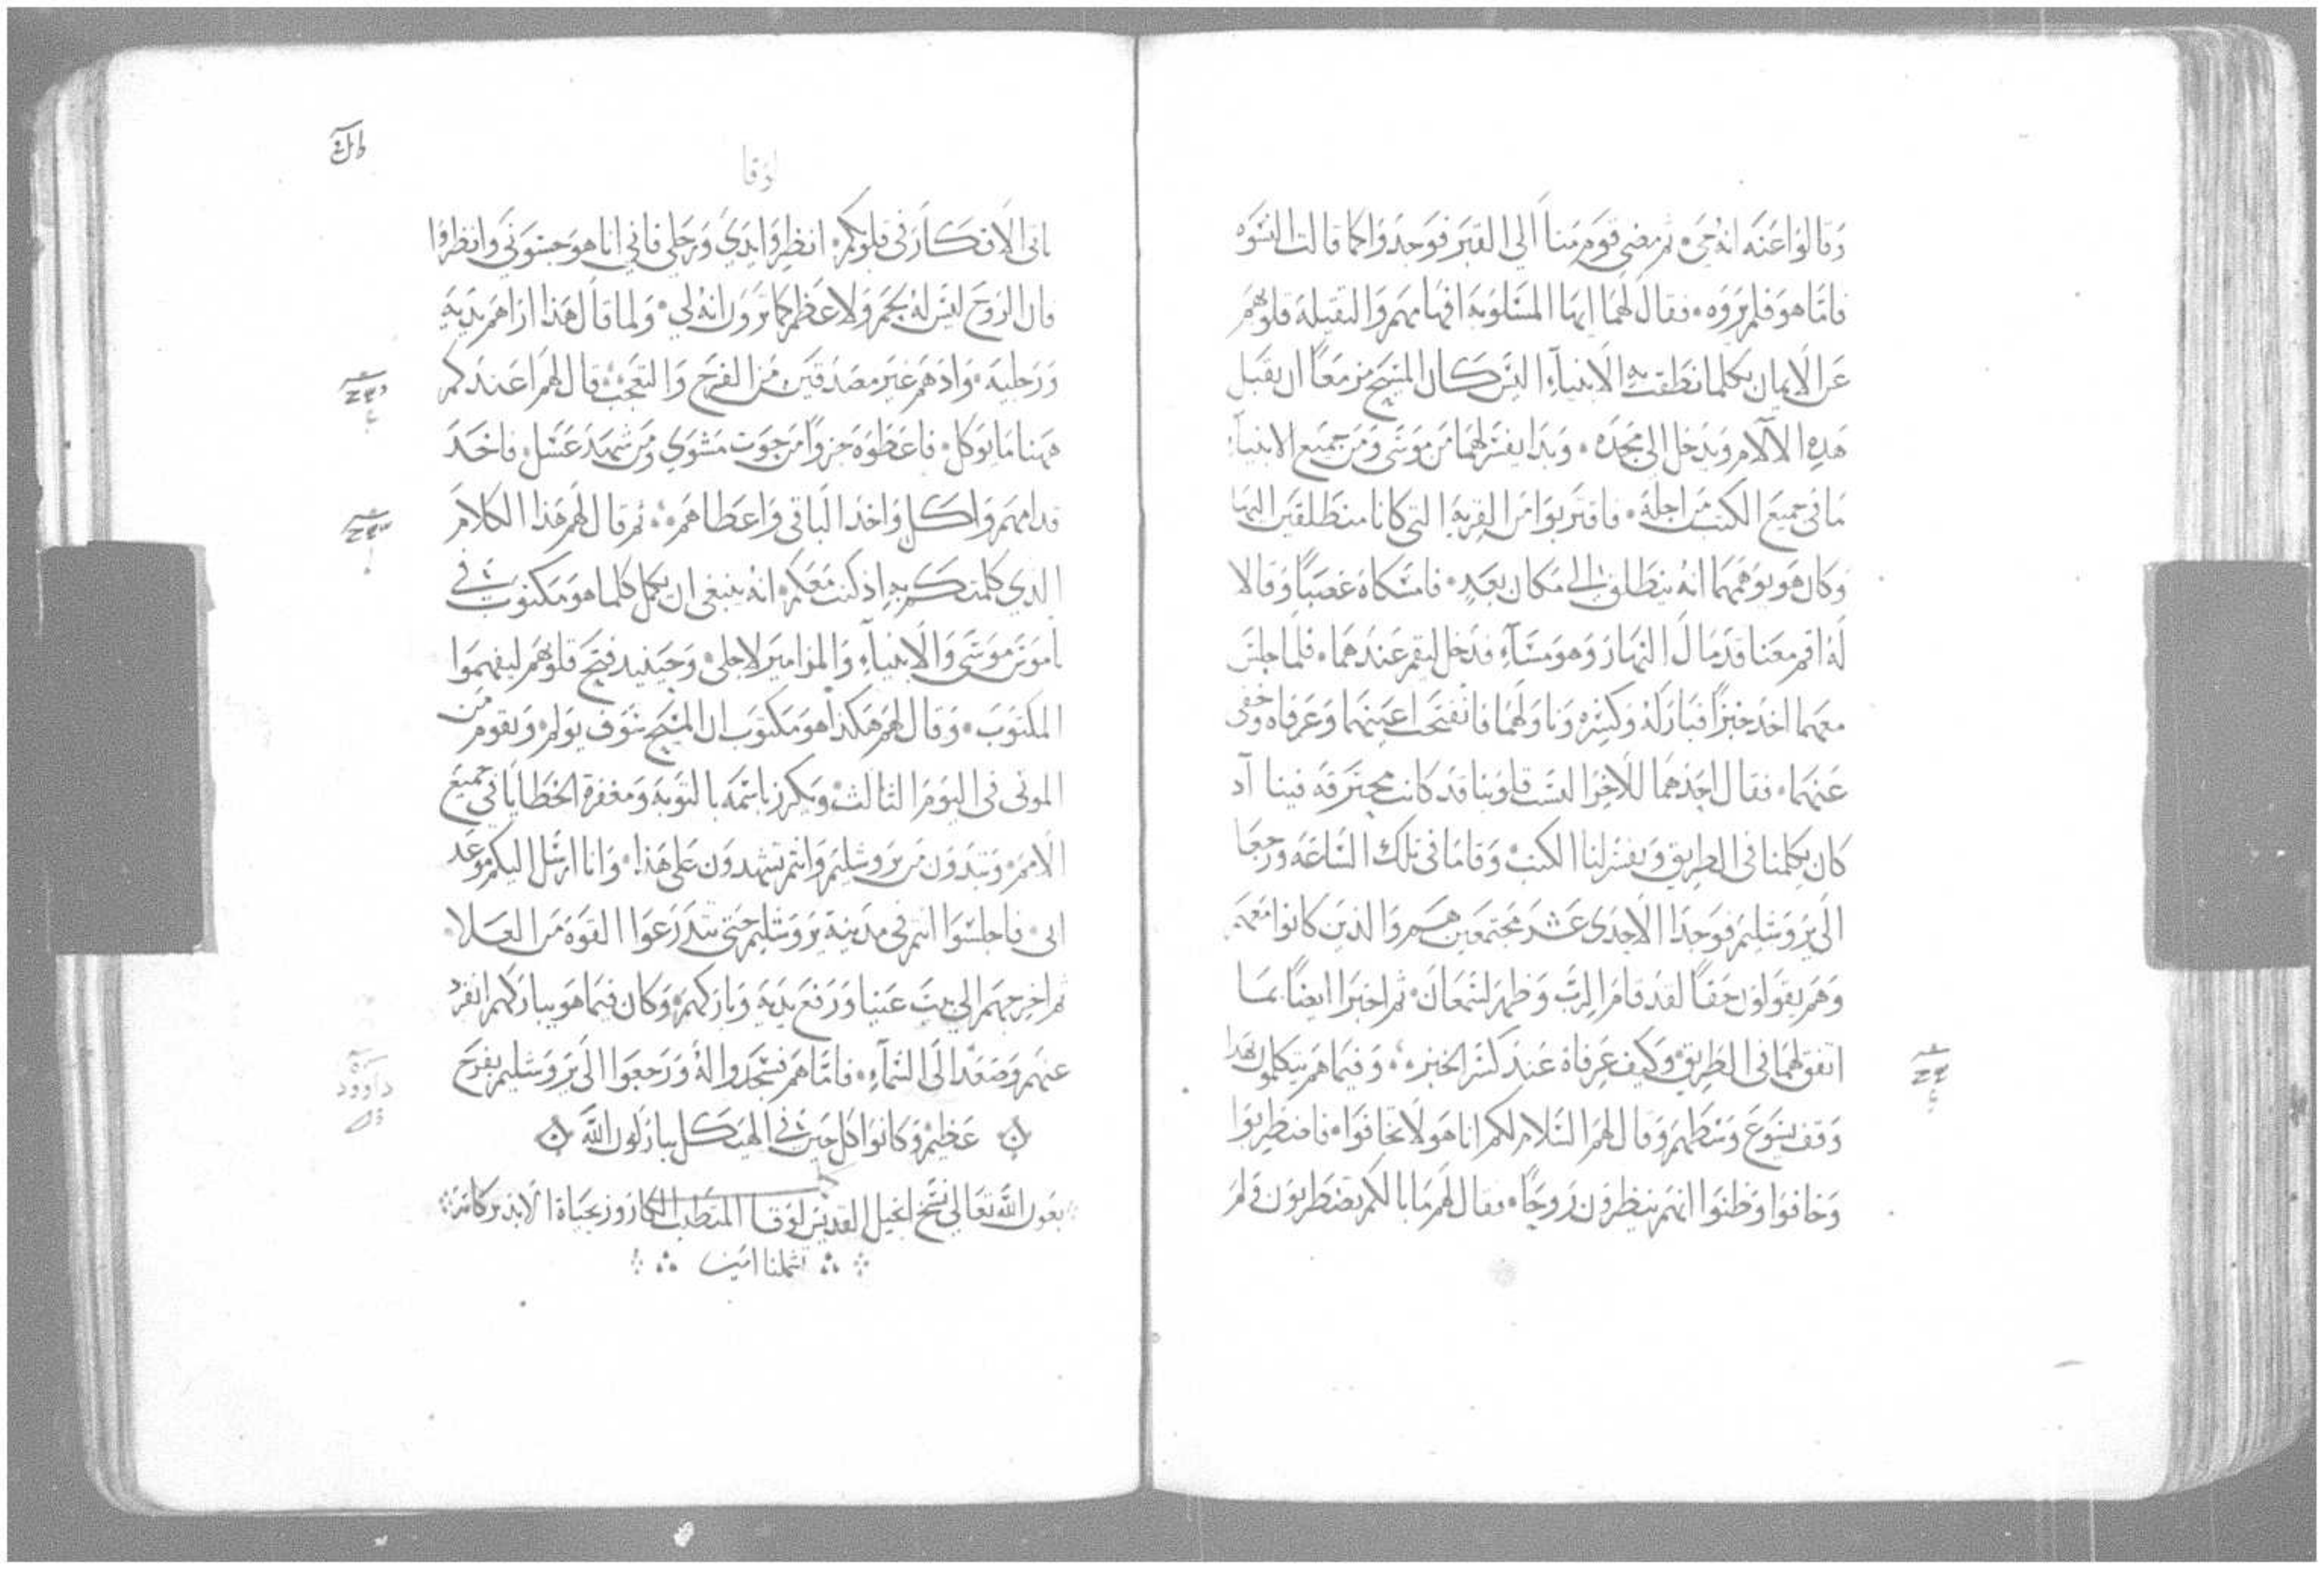 وقالوا عنه انه حي ثم مضى قوم منا الي القبر فوجدوا كما قالت النسوه
فاما هو فلم يروه فقال لهما ايها المسلوبه افهامهم والثقيله قلوبهم
عن الايمان بكلما نطقت به الانبيآء اليس كان المسيح مزمعا ان يقبل
هذه الالآم ويدخل الى مجده وبدا يفسر لهما من موسى ومن جميع الانبيآء
ما في جميع الكتب من اجله فاقتربوا من القريه التي كانا منطلقين اليها
وكان هو يوهمهما انه ينطلق الى مكان بعيد فامسكاه غصبا وقالا
له اقم معنا قد مال النهار وهو مسآء فدخل ليقم عندهما فلما جلس
معهما اخذ خبزا فباركه وكسره وناولهما فانفتحت اعينهما وعرفاه وخفى
عنهما فقال احدهما للاخر اليست قلوبنا قد كانت محترقه فينا اد
كان يكلمنا في الطريق ويفسر لنا الكتب وقاما في تلك الساعه ورجعا
الى يروشليم فوجدا الاحدى عشر مجتمعين هم والذين كانوا معهم
وهم يقولون حقا لقد قام الرب وظهر لسمعان ثم اخبرا ايضا بما
اتفق لهما في الطريق وكيف عرفاه عند كسر الخبز وفيما هم يتكلمون بهدا
وقف يسوع وسطهم وقال لهم السلام لكم انا هو لا تخافوا فاضطربوا
وخافوا وظنوا انهم ينظرون روحا فقال لهم ما بالكم تضطربون ولم
لوقا
تاتى الافكار في قلوبكم انظروا يدي ورجلي فاني انا هو جسوني وانظروا
فان الروح ليس له لحم ولا عظم كما ترون انه لي ولما قال هذا اراهم يديه
ورجليه واذ هم غير مصدقين من الفرح والتعجب قال لهم اعندكم
ههنا ما يوكل فاعطوه جزوا من حوت مشوي ومن شهد عسل فاخذ
قدامهم واكل واخذ الباقي واعطاهم ثم قال لهم هذا الكلام
الذي كلمتكم به اذ كنت معكم انه ينبغي ان يكمل كلما هو مكتوب في
ناموس موسى والانبيآء والمزامير لاجلي وحينيد فتح قلوبهم ليفهموا
المكتوب وقال لهم هكذا هو مكتوب ان المسيح سوف يولم ويقوم من
الموتى في اليوم الثالث ويكرز باسمه بالتوبه ومغفرة الخطايا في جميع
الامم وتبدون من يروشليم وانتم تشهدون على هذا وانا ارسل اليكم موعد
ابي فاجلسوا انتم في مدينة يروشليم حتى تتدرعوا القوه من العلا
ثم اخرجهم الي بيت عنيا ورفع يديه وباركهم وكان فيما هو يباركهم انفرد
عنهم وصعد الى السمآء فاما هم فسجدوا له ورجعوا الى يروشليم بفرح
عظيم وكانوا كل حين في الهيكل يباركون الله
بعون الله تعالى نسخ انجيل القديس لوقا المتطبب الكاروز بحياة الابد بركاته
تشملنا امين
داوود